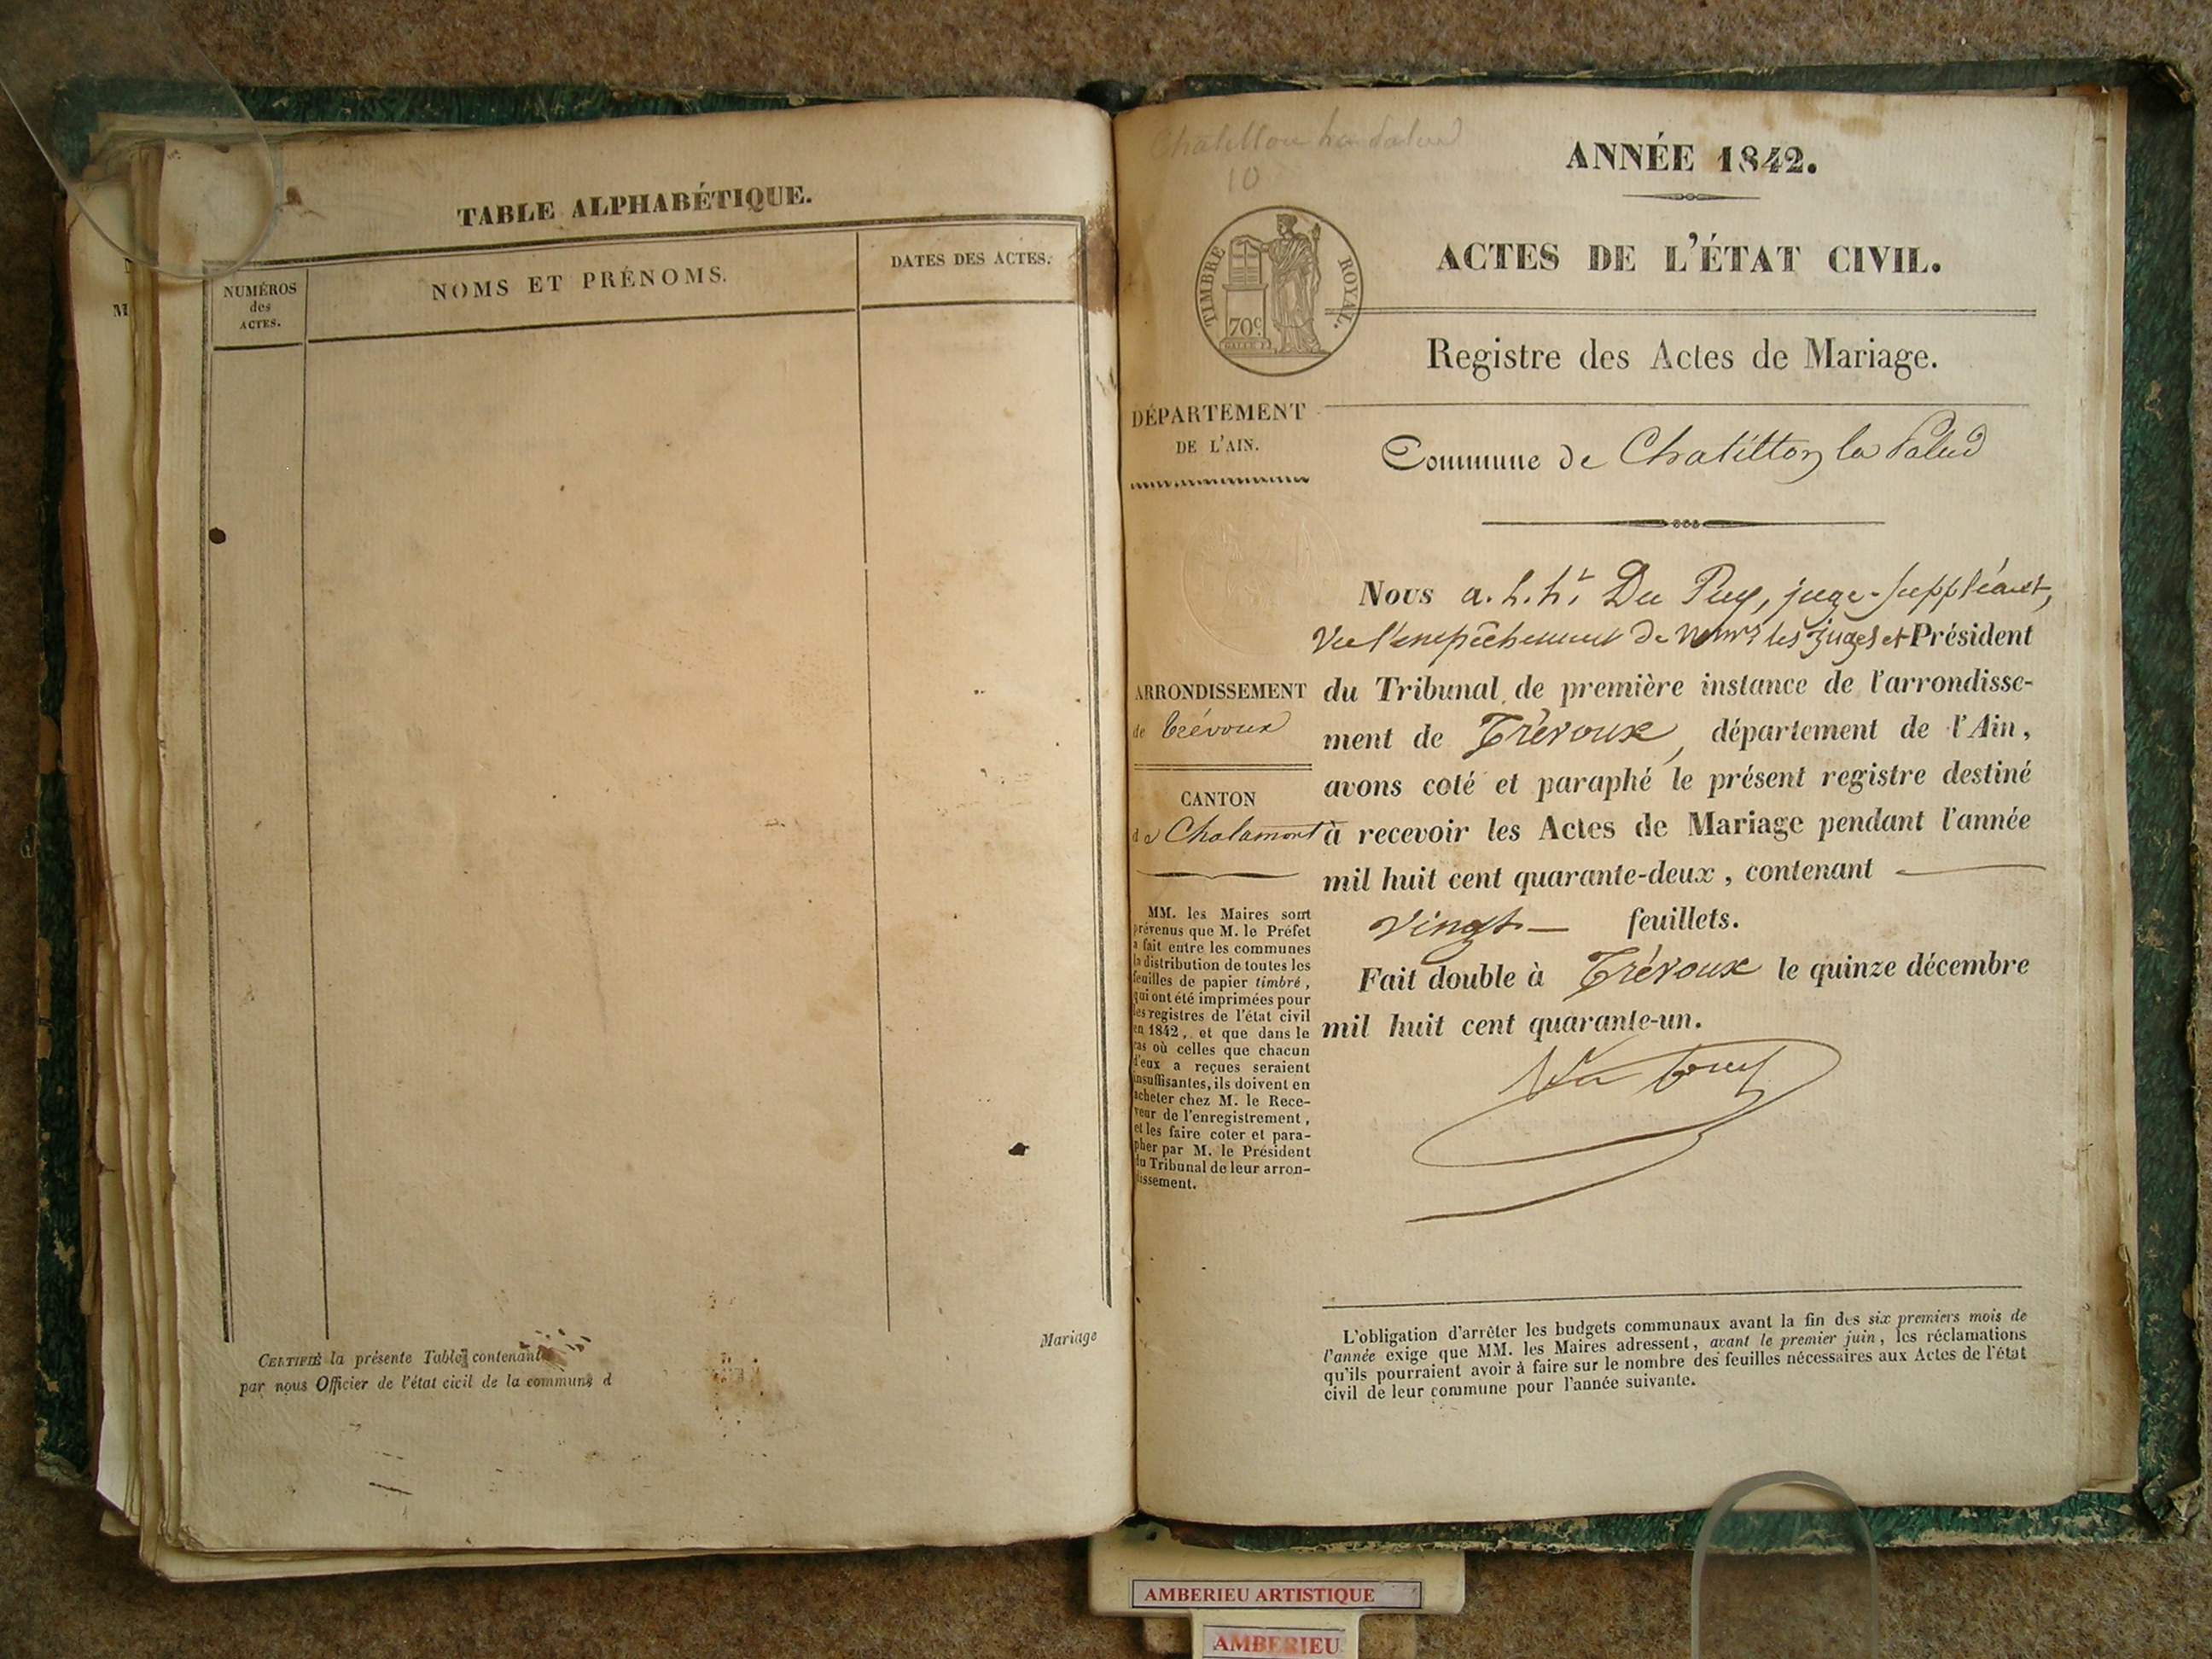 TABLE ALPHABÉTIQUE.
NUMÉROS
des
ACTES.
NOMS ET PRÉNOMS.
DATES DES ACTES.
M
CERTIFIÉ la présente Table contenant
par nous Officier de l'état civil de la commune d
Mariage
Chatillon la Palud
10
TIMBRE ROYAL.
70c
ANNÉE 1842.
ACTES DE L'ÉTAT CIVIL.
Registre des Actes de Mariage.
DÉPARTEMENT
DE L'AIN.
Commune de Chatillon la Palud
ARRONDISSEMENT
de Trévoux
CANTON
de Chalamont
MM. les Maires sont
prévenus que M. le Préfet
a fait entre les communes
la distribution de toutes les
feuilles de papier timbré,
qui ont été imprimées pour
les registres de l'état civil
en 1842, et que dans le
cas où celles que chacun
d'eux a reçues seraient
insuffisantes, ils doivent en
acheter chez M. le Rece-
veur de l'enregistrement,
et les faire coter et para-
pher par M. le Président
du Tribunal de leur arron-
dissement.
Nous a. h. ht Du Puy, juge-suppléant,
Vu l'empêchement de les juges et Président
du Tribunal de première instance de l'arrondisse-
ment de Trévoux, département de l'Ain,
avons coté et paraphé le présent registre destiné
à recevoir les Actes de Mariage pendant l'année
mil huit cent quarante-deux, contenant
vingt — feuillets.
Fait double à Trévoux le quinze décembre
mil huit cent quarante-un.
L'obligation d'arrêter les budgets communaux avant la fin des six premiers mois de
l'année exige que MM. les Maires adressent, avant le premier juin, les réclamations
qu'ils pourraient avoir à faire sur le nombre des feuilles nécessaires aux Actes de l'état
civil de leur commune pour l'année suivante.
AMBERIEU ARTISTIQUE
AMBERIEU